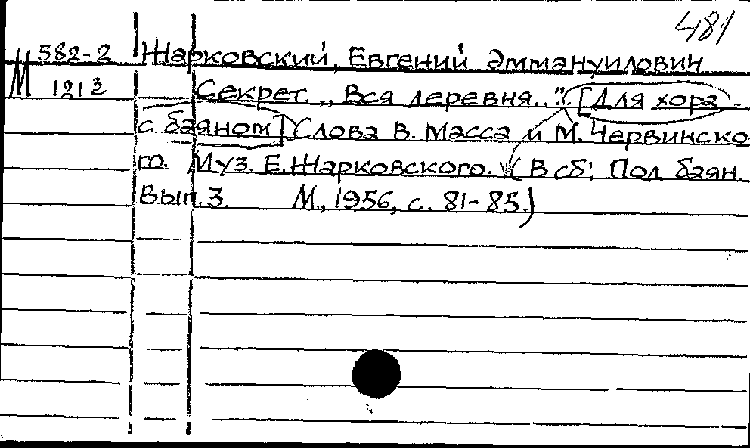 481
582-2 Жарковский, Евгений Эммануилович
М 1213 Секрет „Вся деревня.." [Для хора
с баяном] Слова В. Масса и М. Червинско
го. Муз. Е. Жарковского. (В сб: Пой, баян.
Вып. 3. М., 1956, с. 81-85.)